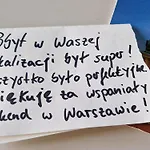 Pobyt w Waszej
kalizacji był super!
zystko było perfekcyjne
iękuję za wspaniały
kend w Warszawie!